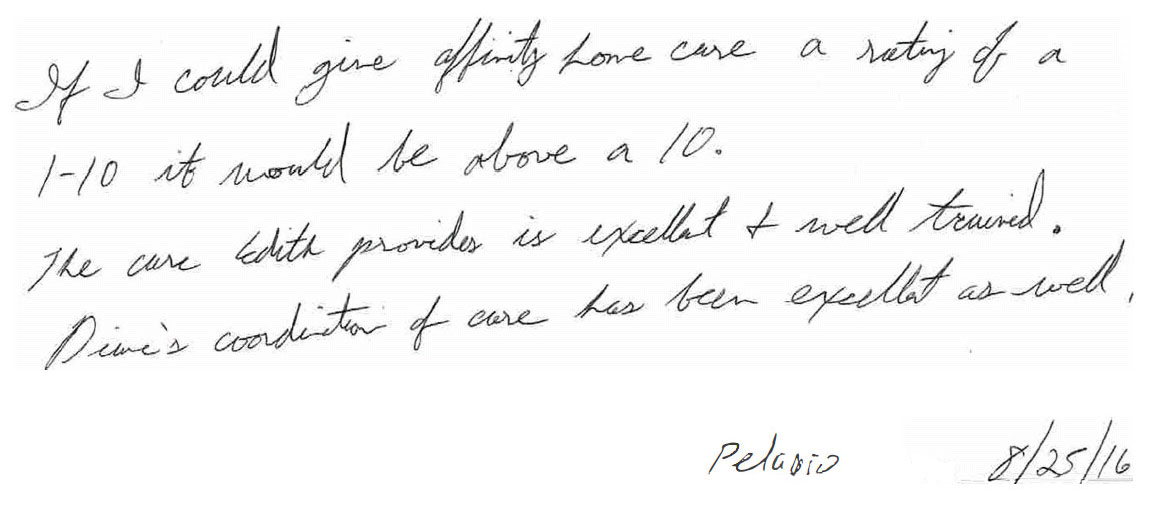 If I could give affinity home care a rating of a
1-10 it would be above a 10.
The care Edith provides is excellent & well trained.
coordination of care has been excellent as well.
8/25/16